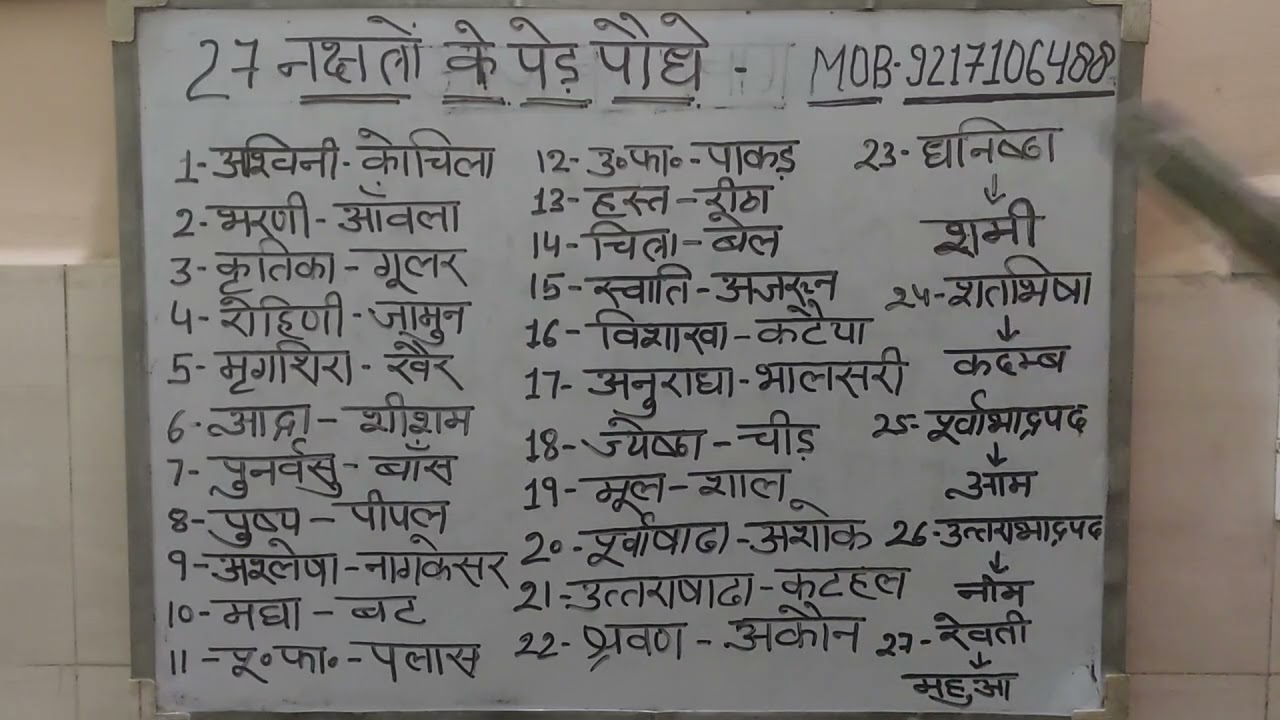 27 नक्षत्रों के पेड़ पौधे - MOB-9217106488
1- अश्विनी - कोचिला
2- भरणी - आँवला
3- कृतिका - गूलर
4- रोहिणी - जामुन
5- मृगशिरा - खैर
6- आद्रा - शीशम
7- पुनर्वसु - बाँस
8- पुष्प - पीपल
9- अश्लेषा - नागकेसर
10- मघा - बट
11- पू॰फा॰ - पलास
12- उ॰फा॰ - पाकड़
13- हस्त - रीठा
14- चित्रा - बेल
15- स्वाति - अजरुन
16- विशाखा - कटैया
17- अनुराधा - भालसरी
18- ज्येष्ठा - चीड़
19- मूल - शाल
20- पूर्वाषाढा - अशोक
21- उत्तराषाढा - कटहल
22- श्रवण - अकौन
23- धनिष्ठा
↓
शमी
24- शतभिषा
↓
कदम्ब
25- पूर्वाभाद्रपद
↓
आँम
26- उत्तराभाद्रपद
↓
नीम
27- रेवती
↓
महुआ